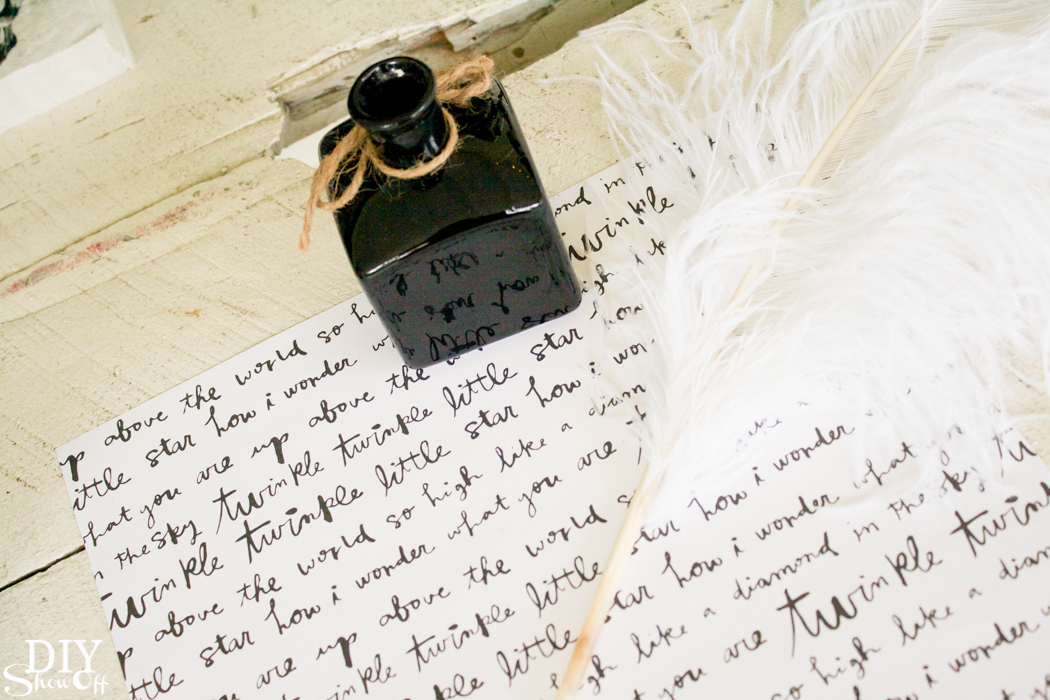 p above the world so hi ond in
ittle star how i wonder w twinkle
what you are up above the igh like
in the sky twinkle twinkle little star how
twinkle twinkle little star how i won
p above the world so high like a diam
ttle star how i wonder what you are
are up above the world s like a
twinkle little star how i wonder
twinkle little tar how i wonder what you
gh like a diamond in the sky
t you are twinkle twin
so high like a diam
i wonder
DIY
Show Off